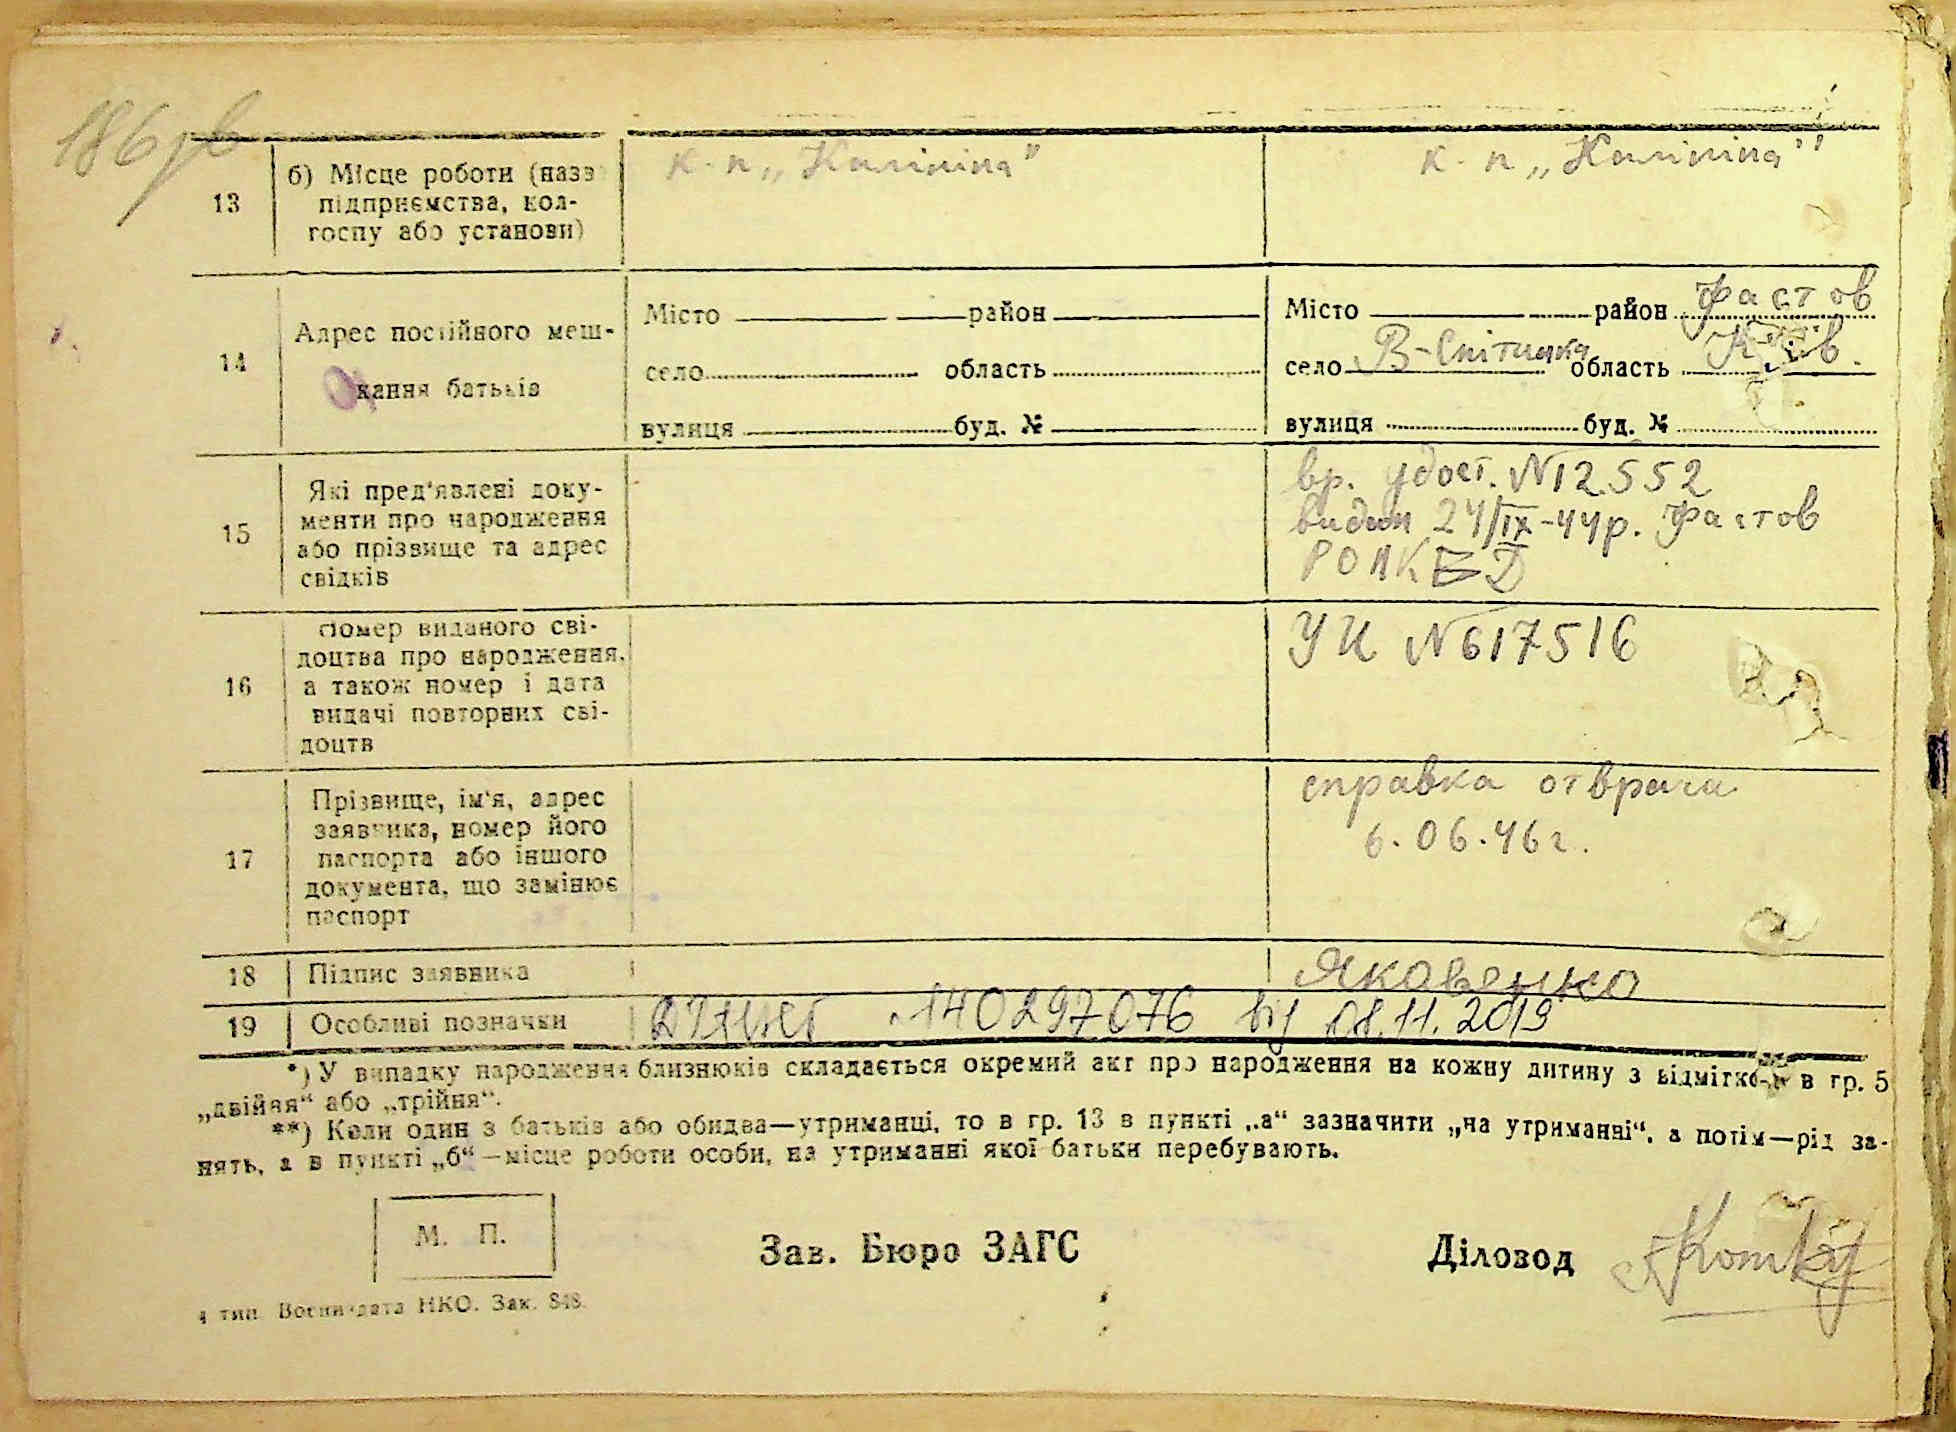 186
13 б) Місце роботи (назв
підприємства, кол-
госпу або установи)
к-п „Калініна" к-п „Калініна"
14 Адрес постійного меш-
кання батьків
Місто район
село область
вулиця буд. №
Місто район Фастов
село В-Снітинка область Київ.
вулиця буд. №
15 Які пред'явлені доку-
менти про народження
або прізвище та адрес
свідків
вр. удост. №12552
видан 24/IX-44р. Фастов
РОНКВД
16 Номер виданого сві-
доцтва про народження,
а також номер і дата
видачі повторних сві-
доцтв
УИ №617516
17 Прізвище, ім'я, адрес
заявника, номер його
паспорта або іншого
документа, що замінює
паспорт
справка от врача
6.06.46г.
18 Підпис заявника Яковенко
19 Особливі позначки 140297076 від 08.11.2019
*) У випадку народження близнюків складається окремий акт про народження на кожну дитину з відміткою в гр. 5
„двійня" або „трійня".
**) Коли один з батьків або обидва—утриманці, то в гр. 13 в пункті „а" зазначити „на утриманні", а потім—рід за-
нять, а в пункті „б"—місце роботи особи, на утриманні якої батьки перебувають.
М. П.
Зав. Бюро ЗАГС
Діловод
4 тип. Воениздата НКО. Зак. 848.